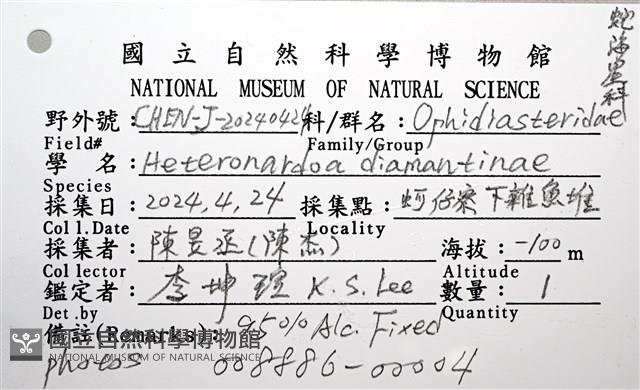 蛇海星科
國立自然科學博物館
NATIONAL MUSEUM OF NATURAL SCIENCE
野外號:CHEN-J-20240424 科/群名:Ophidiasteridae
Field# Family/Group
學 名:Heteronardoa diamantinae
Species
採集日:2024,4,24 採集點:蚵仔寮下雜魚堆
Coll.Date Locality
採集者:陳昱丞(陳杰) 海拔:-100 m
Collector Altitude
鑑定者:李坤瑄 K.S.Lee 數量:1
Det.by Quantity
備註(Remarks): 95% Alc. Fixed
國立自然科學博物館
NATIONAL MUSEUM OF NATURAL SCIENCE
photos 008886-00004